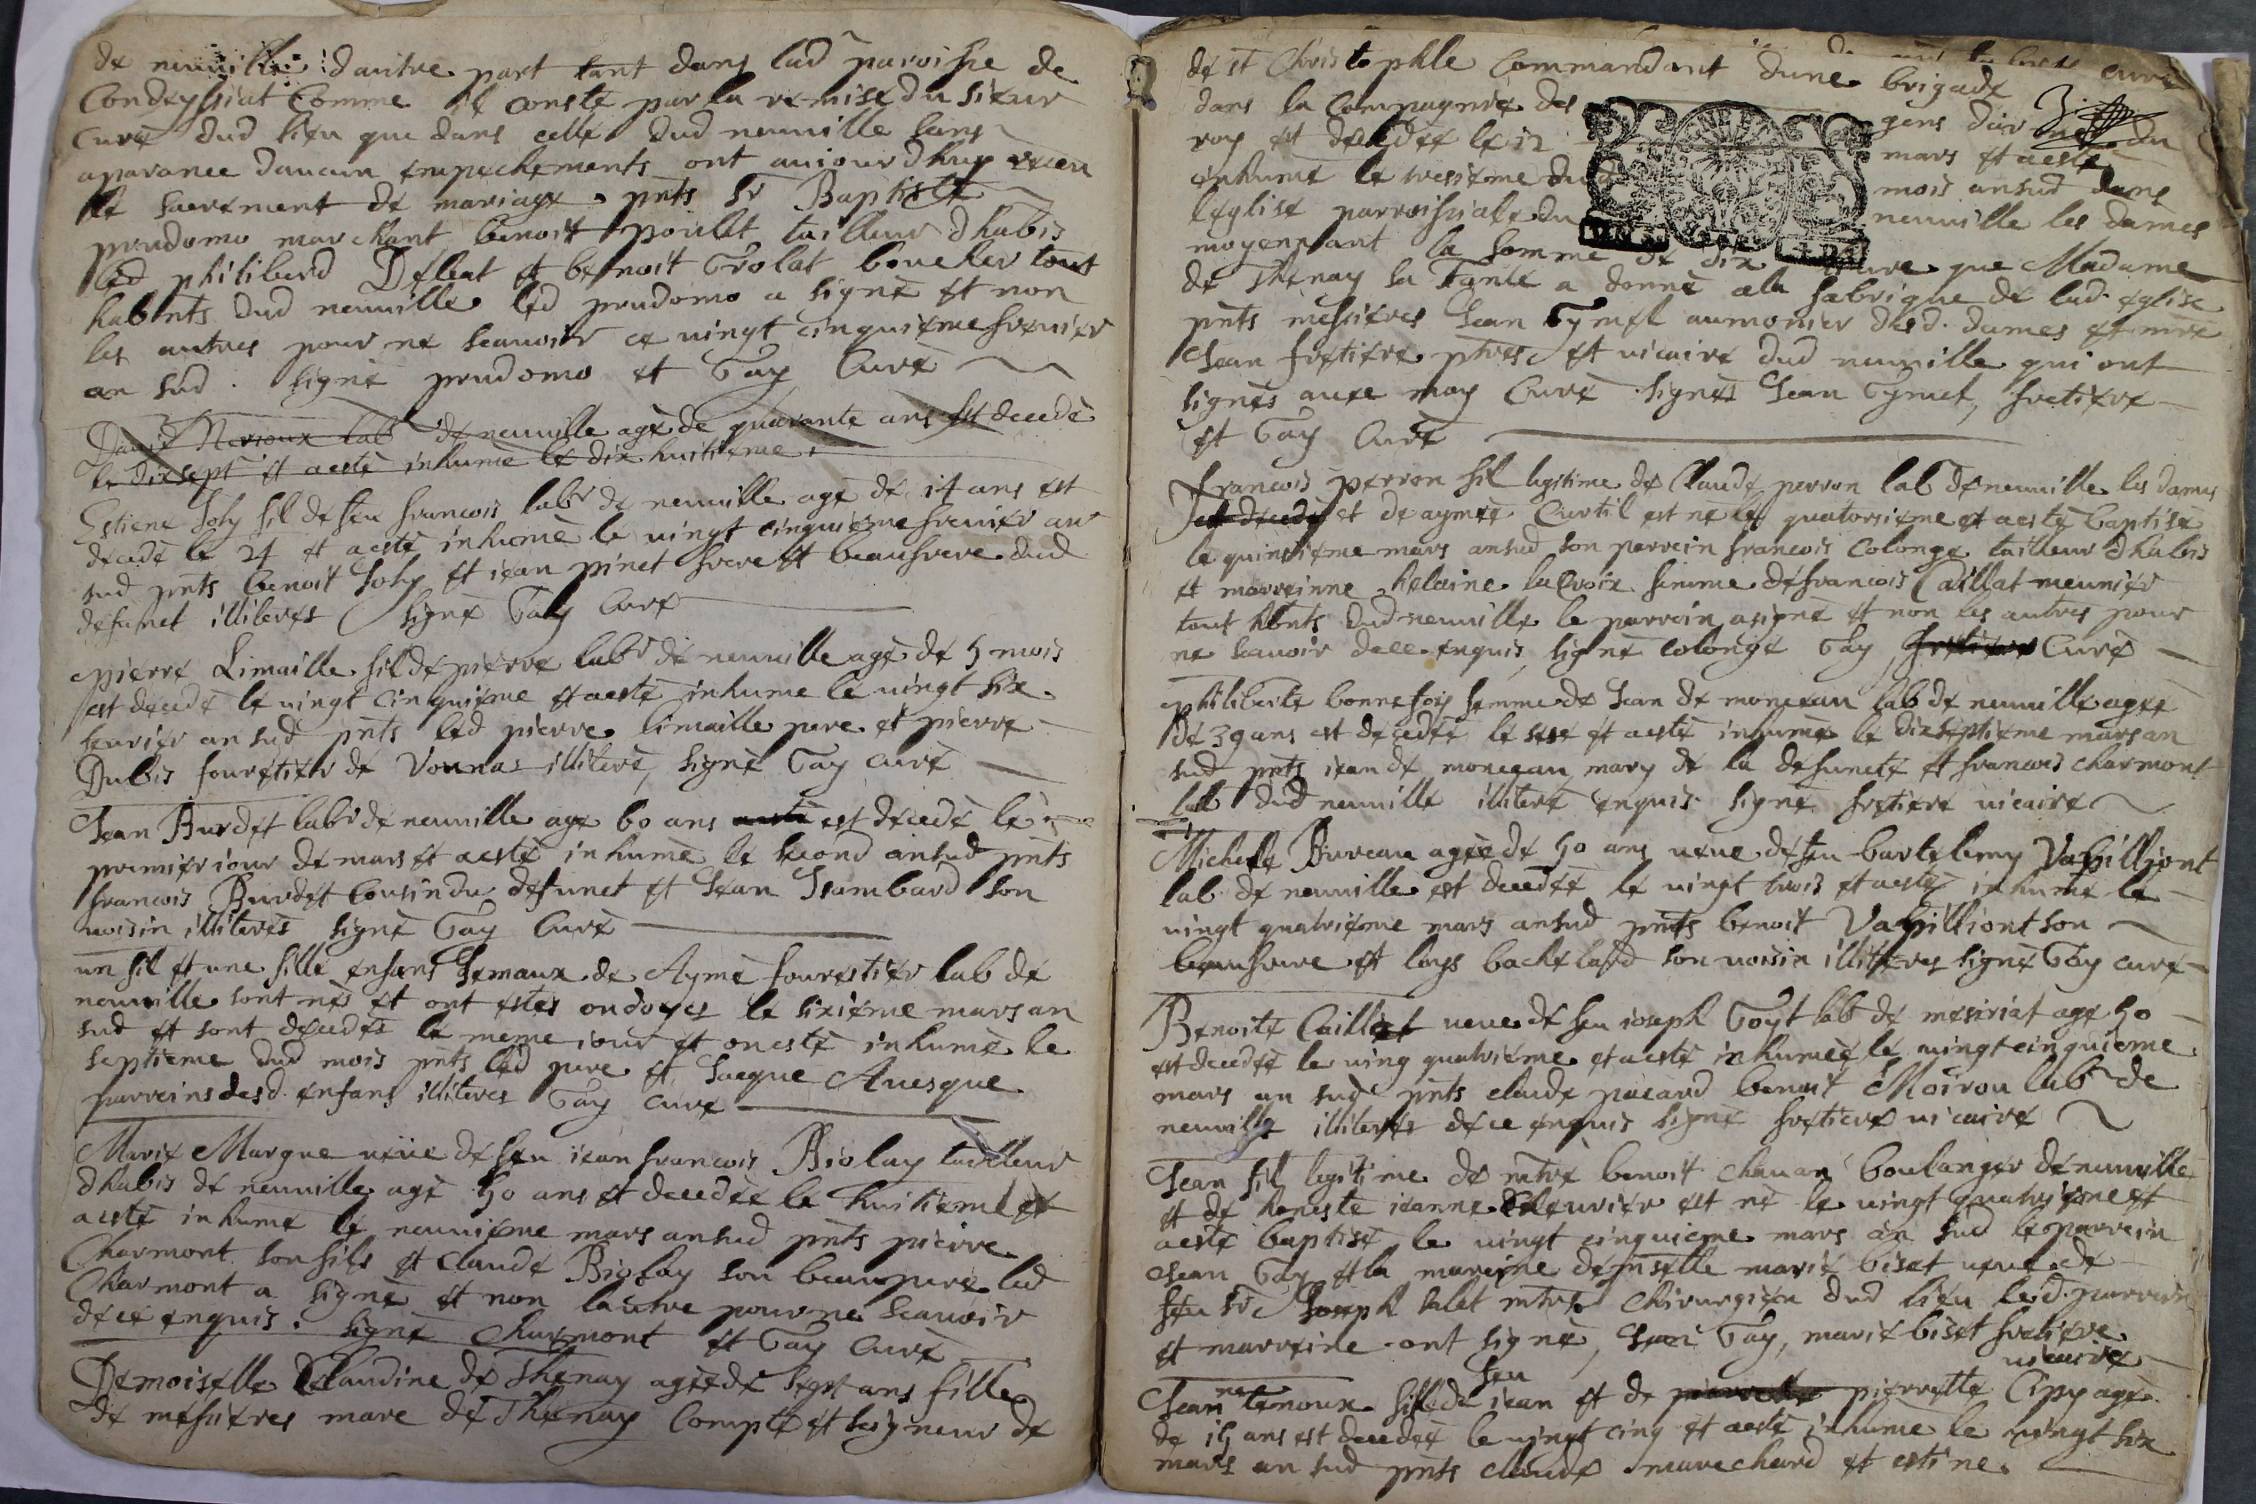 de neuville d'autre part tant dans lad parroisse de
Condeyssiat Comme il conste par la remise du sieur
Curé dud lieu que dans celle dud neuville sans
aparance daucun empechements ont auiourdhuy receu
le sacrement de mariage pnts Sr Baptiste
prudomo marchant benoit poulet tailleur dhabis
led philiberd Defleat et benoit Trolat boucher tout
habnts dud neuville led prudomo a signé et non
les autres pour ne scauoir ce uingt cinquième feurier
an sud. signé prudomo et Gay Curé
Merioux lab de neuville agé de quarante ans est decedé
le dixsept et aesté inhumé le dix huitieme.
Estiene Joly fil de feu francois labr de neuville agé de 14 ans est
decedé le 24 et aesté inhumé le uingt cinquieme feurier an
sud pnts benoit Joly et iean pinet frere et beaufrere dud
defunct illiterés signé Gay Curé
pierre Limaille fil de pierre labr de neuville agé de 5 mois
est decedé le uingt cinquieme et aesté inhume le uingt six
feurier an sud pnts led pierre limaille pere et pierre
Dubis fouretier de Vonnas illiteré, signé Gay curé
Jean Burdet labr de neuville age 60 ans est decedé le
premier iour de mars et aesté inhumé le second ansud pnts
francois Burdet Cousin du defunct et Jean Isambard son
uoisin illiterés signé Gay Curé
un fil et une fille enfans Jemaux de Aymé fourestier lab de
neuville sont nés et ont estes ondoyes le sixième mars an
sud et sont decedés le meme iour et onesté inhumé le
septieme dud mois pnts led pere et Jacque Auesque
parreins desd. enfans illiteres Gay curé
Marie Margue ueue de feu iean francois Biolay tailleur
dhabis de neuville agé 50 ans et decedée le huitieme et
aesté inhumé le neuuieme mars ansud pnts pierre
Charmont son fils et Claude Biolay son beaupere led
Charmont a signé et non lautre pour ne scauoir
dece enquis. signé Charmont et Gay Curé
Demoiselle Claudine de Thenay agée de sept ans fille
de messieres marc de Thenay Compte et seigneur de
de st Christophle Commandant dune brigade
dans la Compagnie des gens du
roy est decedée le 12 mars et aesté
inhumé le tresieme dud mois ansud dans
léglise parroissiale du neuville les dames
moyennant la somme de dix que Madame
de Thenay sa Tante a donné ala fabrique de lad. eglise
pnts messieres Jean Gymel aumonier desd. dames et mre
Jean fretiere ptres et uicaire dud neuville qui ont
signés auec moy Curé signés Jean Gymel, fretiere
et Gay Curé
francois perron fil legitime de Claude perron lab de neuville les dames
est decedé et de aymée Curtil est né le quatorsieme et aesté baptisé
le quinsieme mars ansud son parrein francois Colonge tailleur dhabis
et marreinne helaine lacroix femme de francois Caillat meunier
tout hbnts dud neuville le parrein a signé et non les autres pour
ne scauoir dece enquis, signé colonge Gay fretiere Curé
philiberte bonnefoy femme de Jean de monceau lab de neuville agée
de 39 ans est decedée le sese et aesté inhumé le dixseptieme mars an
sud pnts iean de moneceau mary de la defuncte et francois charmont
lab dud neuville illiteré enquis signé fretiere uicaire
Michele Bureau agée de 50 ans ueue de feu bartelemy Vapilliont
lab de neuville est decedée le uingt trois et aesté inhumé le
uingt quatrieme mars ansud pnts benoit Vapilliont son
beaufrere et loys bachelard son uoisin illiteres signé Gay curé
Benoite Caillat ueue de feu ioseph Goyt lab de mesiriat age 50
est decedée le uing quatrieme et aesté inhumée le uingt cinquieme
mars an sud pnts claude pacard benoit Moirou labr de
neuville illiterés dece enquis signé fretiere uicaire
Jean fil legitime de mtre benoit chauan boulanger de neuville
et de honeste ieanne est né le uingt quatrieme et
aesté baptisé le uingt cinquieme mars an sud le parrein
Jean Gay et la mareine demselle marie biset ueue de
feu sr Joseph mtre Chirurgien dud lieu led. parrein
et marreine ont signé, Jean Gay, marie biset fretiere
uicaire
Jeanne temoux fille de feu iean et de pierrette Cipy agé
de 15 ans est decedée le uingt cinq et aesté inhumé le uingt six
mars an sud pnts claude marechard et estine